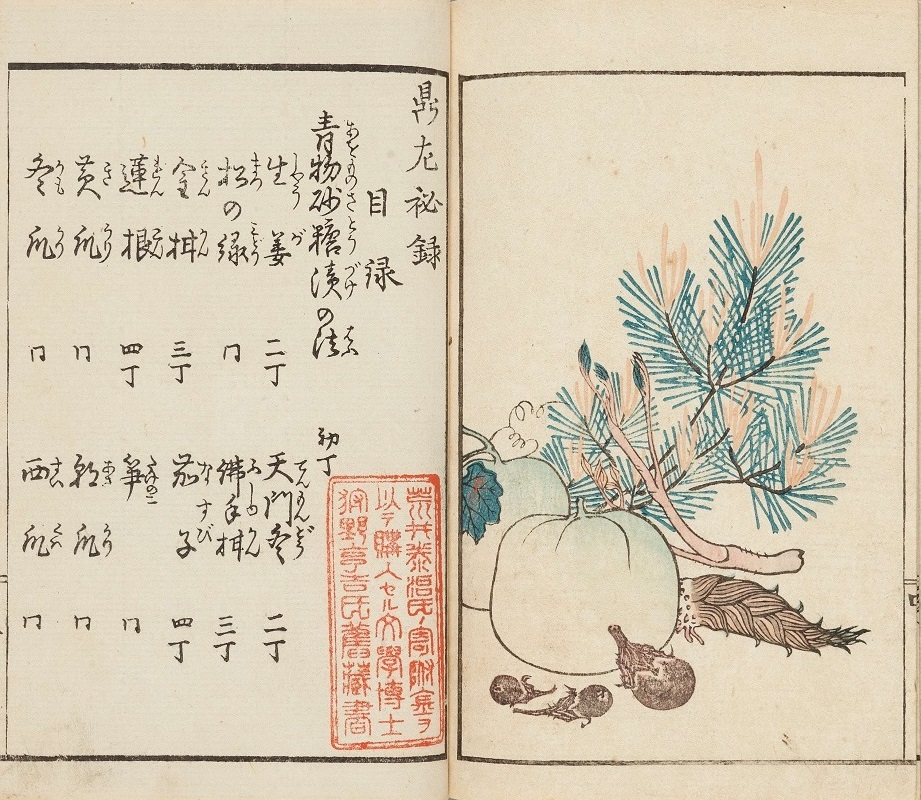 鼎左秘録
目録
青物砂糖漬の法 初丁
あをものさとうづけ はふ
生姜 二丁 天門冬 二丁
松の緑 同 佛手柑 三丁
金柑 三丁 茄子 四丁
蓮根 四丁 笋 同
黄瓜 同 瓜 同
冬瓜 同 西瓜 同
荒井泰治氏ノ寄附金ヲ
以テ購入セル文學博士
狩野亨吉氏舊藏書